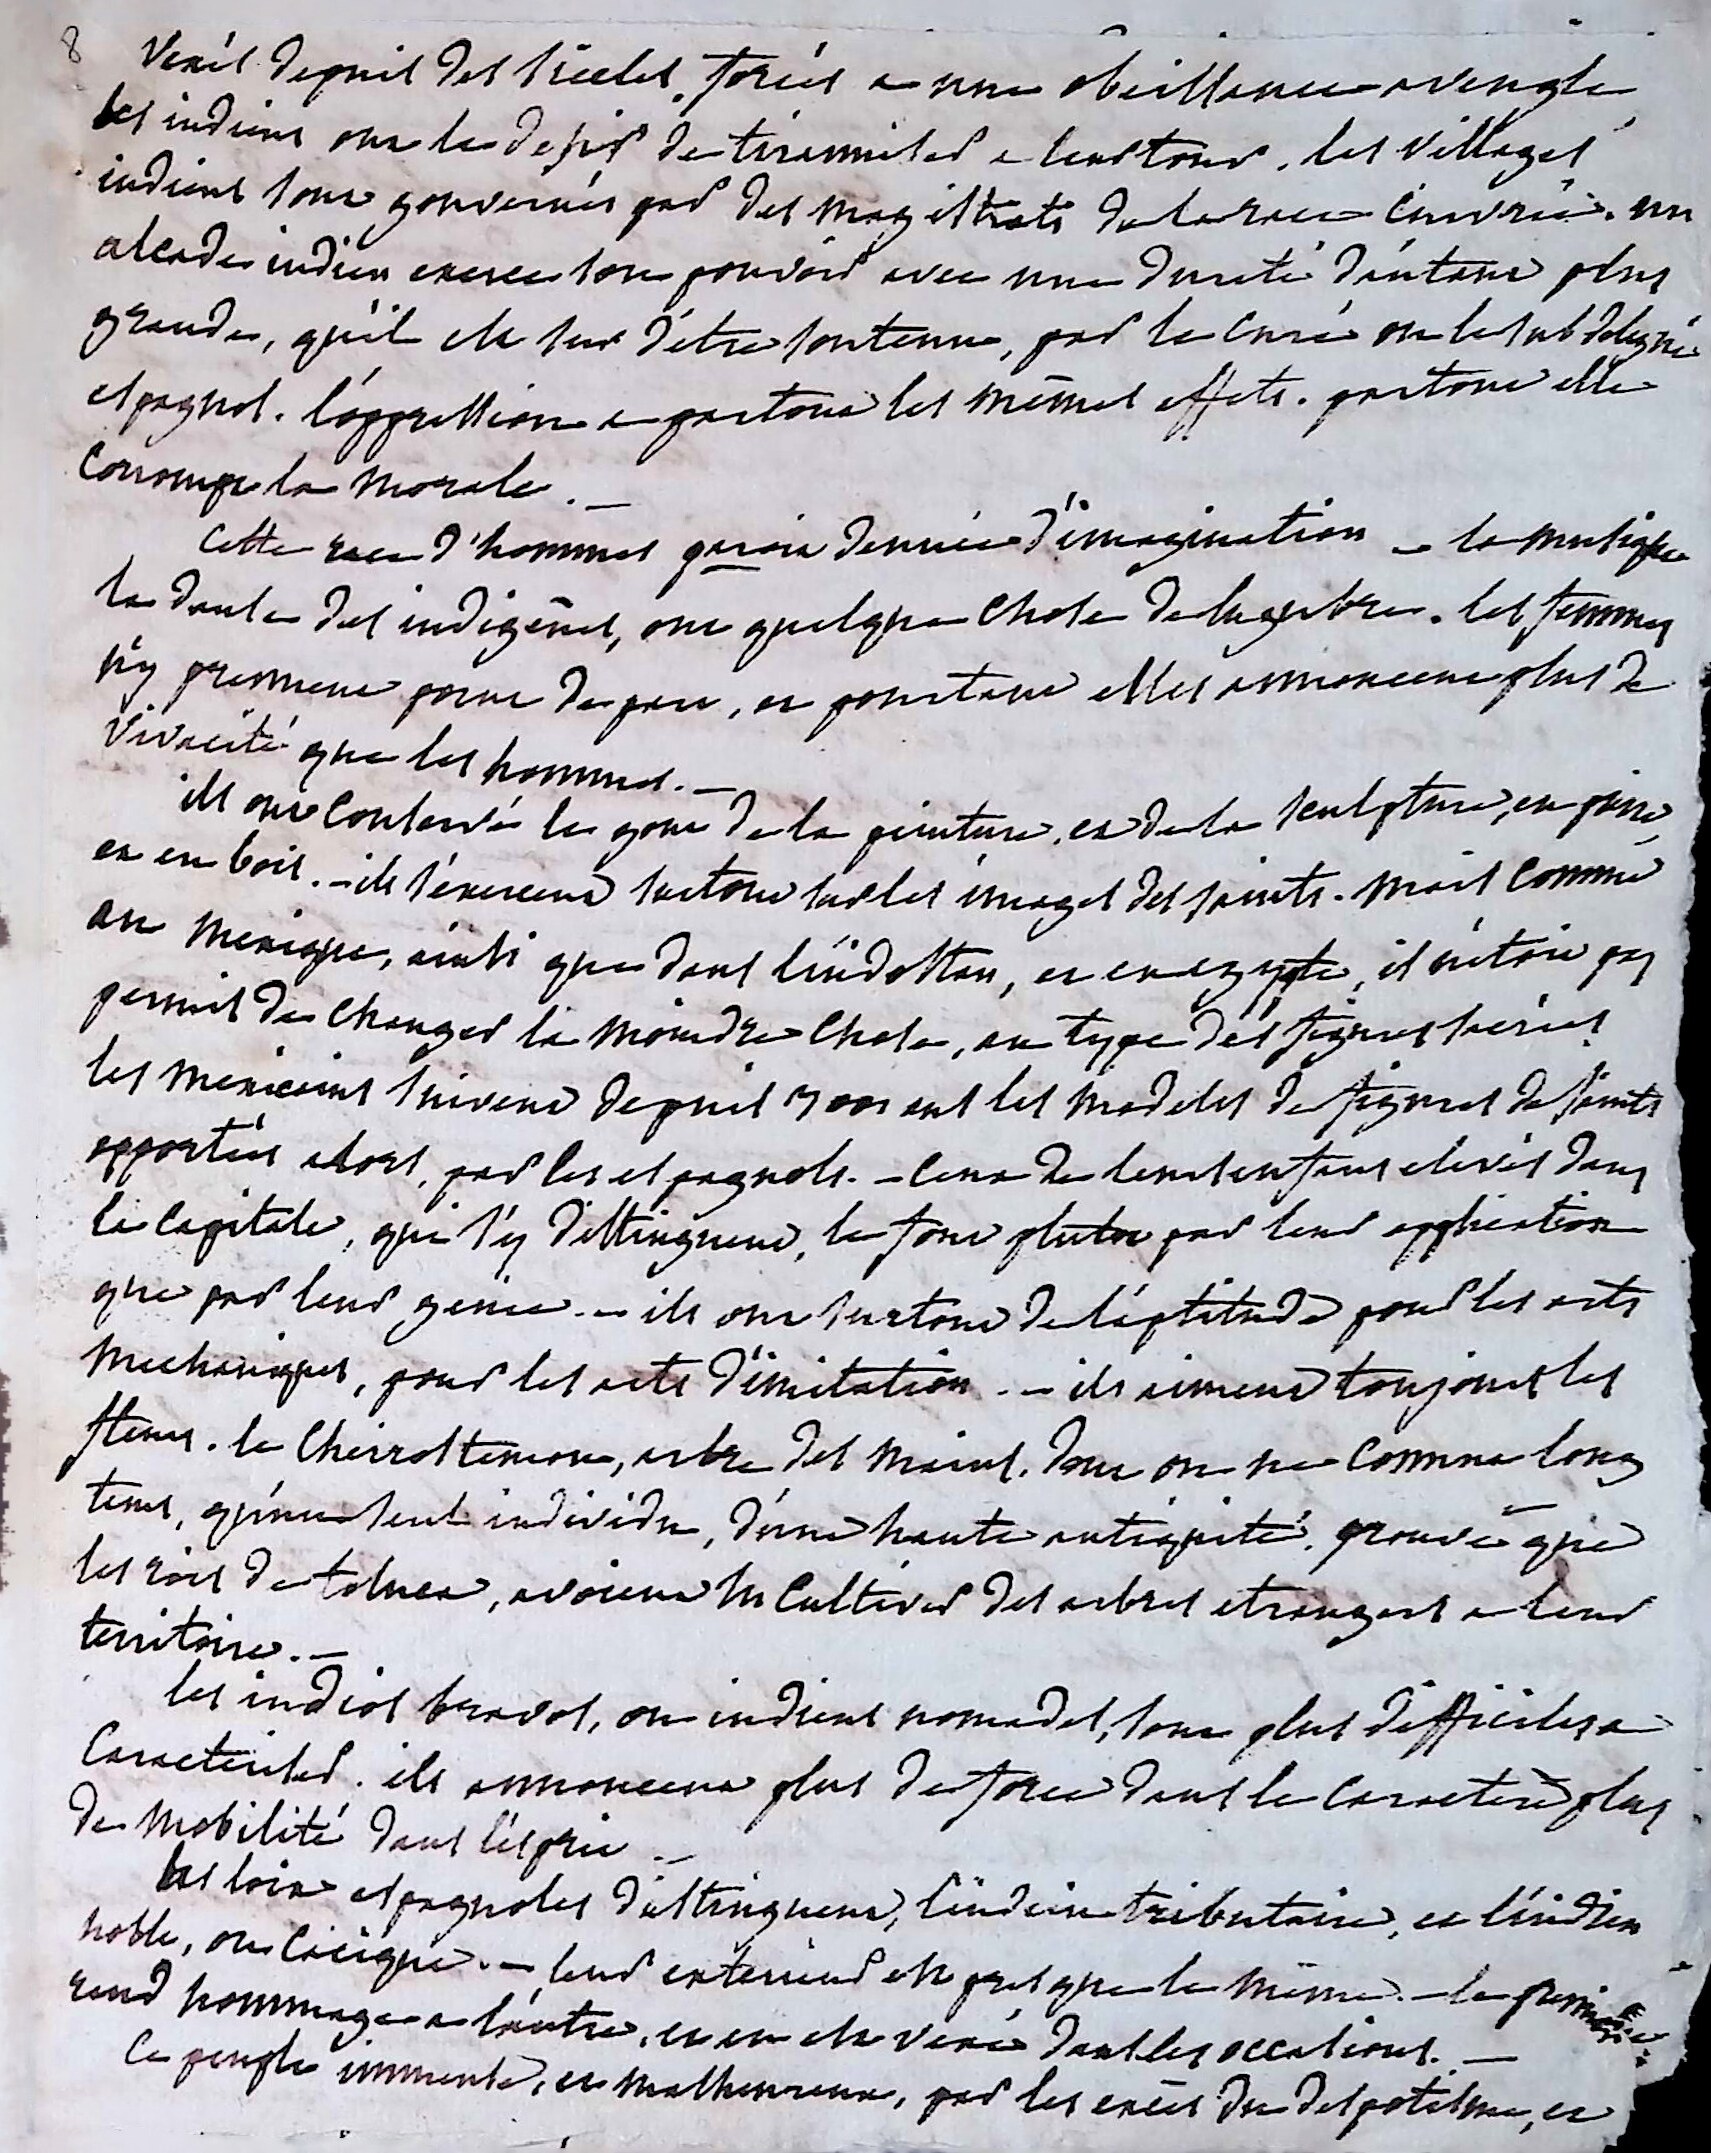 8
vexés depuis des siècles, forcés a une obeissance aveugle
les indiens ont le desir de tiranniser a leur tour. les villages
indiens sont gouvernés par des magistrats de la race cuivrée. un
alcade indien exerce son pouvoir avec une dureté d'autant plus
grande, qu'il est sur d'être soutenu, par le curé ou le subdelegué
espagnol. l'oppression a partout les mêmes effets. partout elle
corrompt la morale. _
cette race d'hommes paroit denuée d'imagination _ la musique
la danse des indigênes, ont quelque chose de lugubre. les femmes
n'y prennent point de part, et pourtant elles annoncent plus de
vivacité que les hommes. _
ils ont conservé le gout de la peinture, et de la sculpture, en pierre,
et en bois. _ ils s'exercent surtout sur les images des saints. mais comme
au mexique, ainsi que dans l'indostan, et en egypte, il n'etoit pas
permis de changer la moindre chose, au type des figures sacrées
les mexicains suivent depuis 300 ans les modeles de figures de saints
apportées alors, par les espagnols. _ ceux de leurs enfans elevés dans
la capitale, qui s'y distinguent, le font plutot par leur application
que par leur genie. _ ils ont surtout de l'aptitude pour les arts
mechaniques, pour les arts d'imitation. _ ils aiment toujours les
fleurs. le cheirostemon, arbre des mains, dont on ne connut long
tems, qu'un seul individu, d'une haute antiquité, prouve que
les rois de toluca, avoient su cultiver des arbres etrangers a leur
territoire. _
les indios bravos, ou indiens nomades, sont plus difficiles a
caracteriser. ils annoncent plus de force dans le caractere plus
de mobilité dans l'esprit _
les loix espagnoles distinguent, l'indien tributaire, et l'indien
noble, ou cacique. _ leur exterieur est presque le même. _ le premier
rend hommage a l'autre, et en est vexé dans les occasions. _
Ce peuple immense, et malheureux, par les excès du despotisme, et